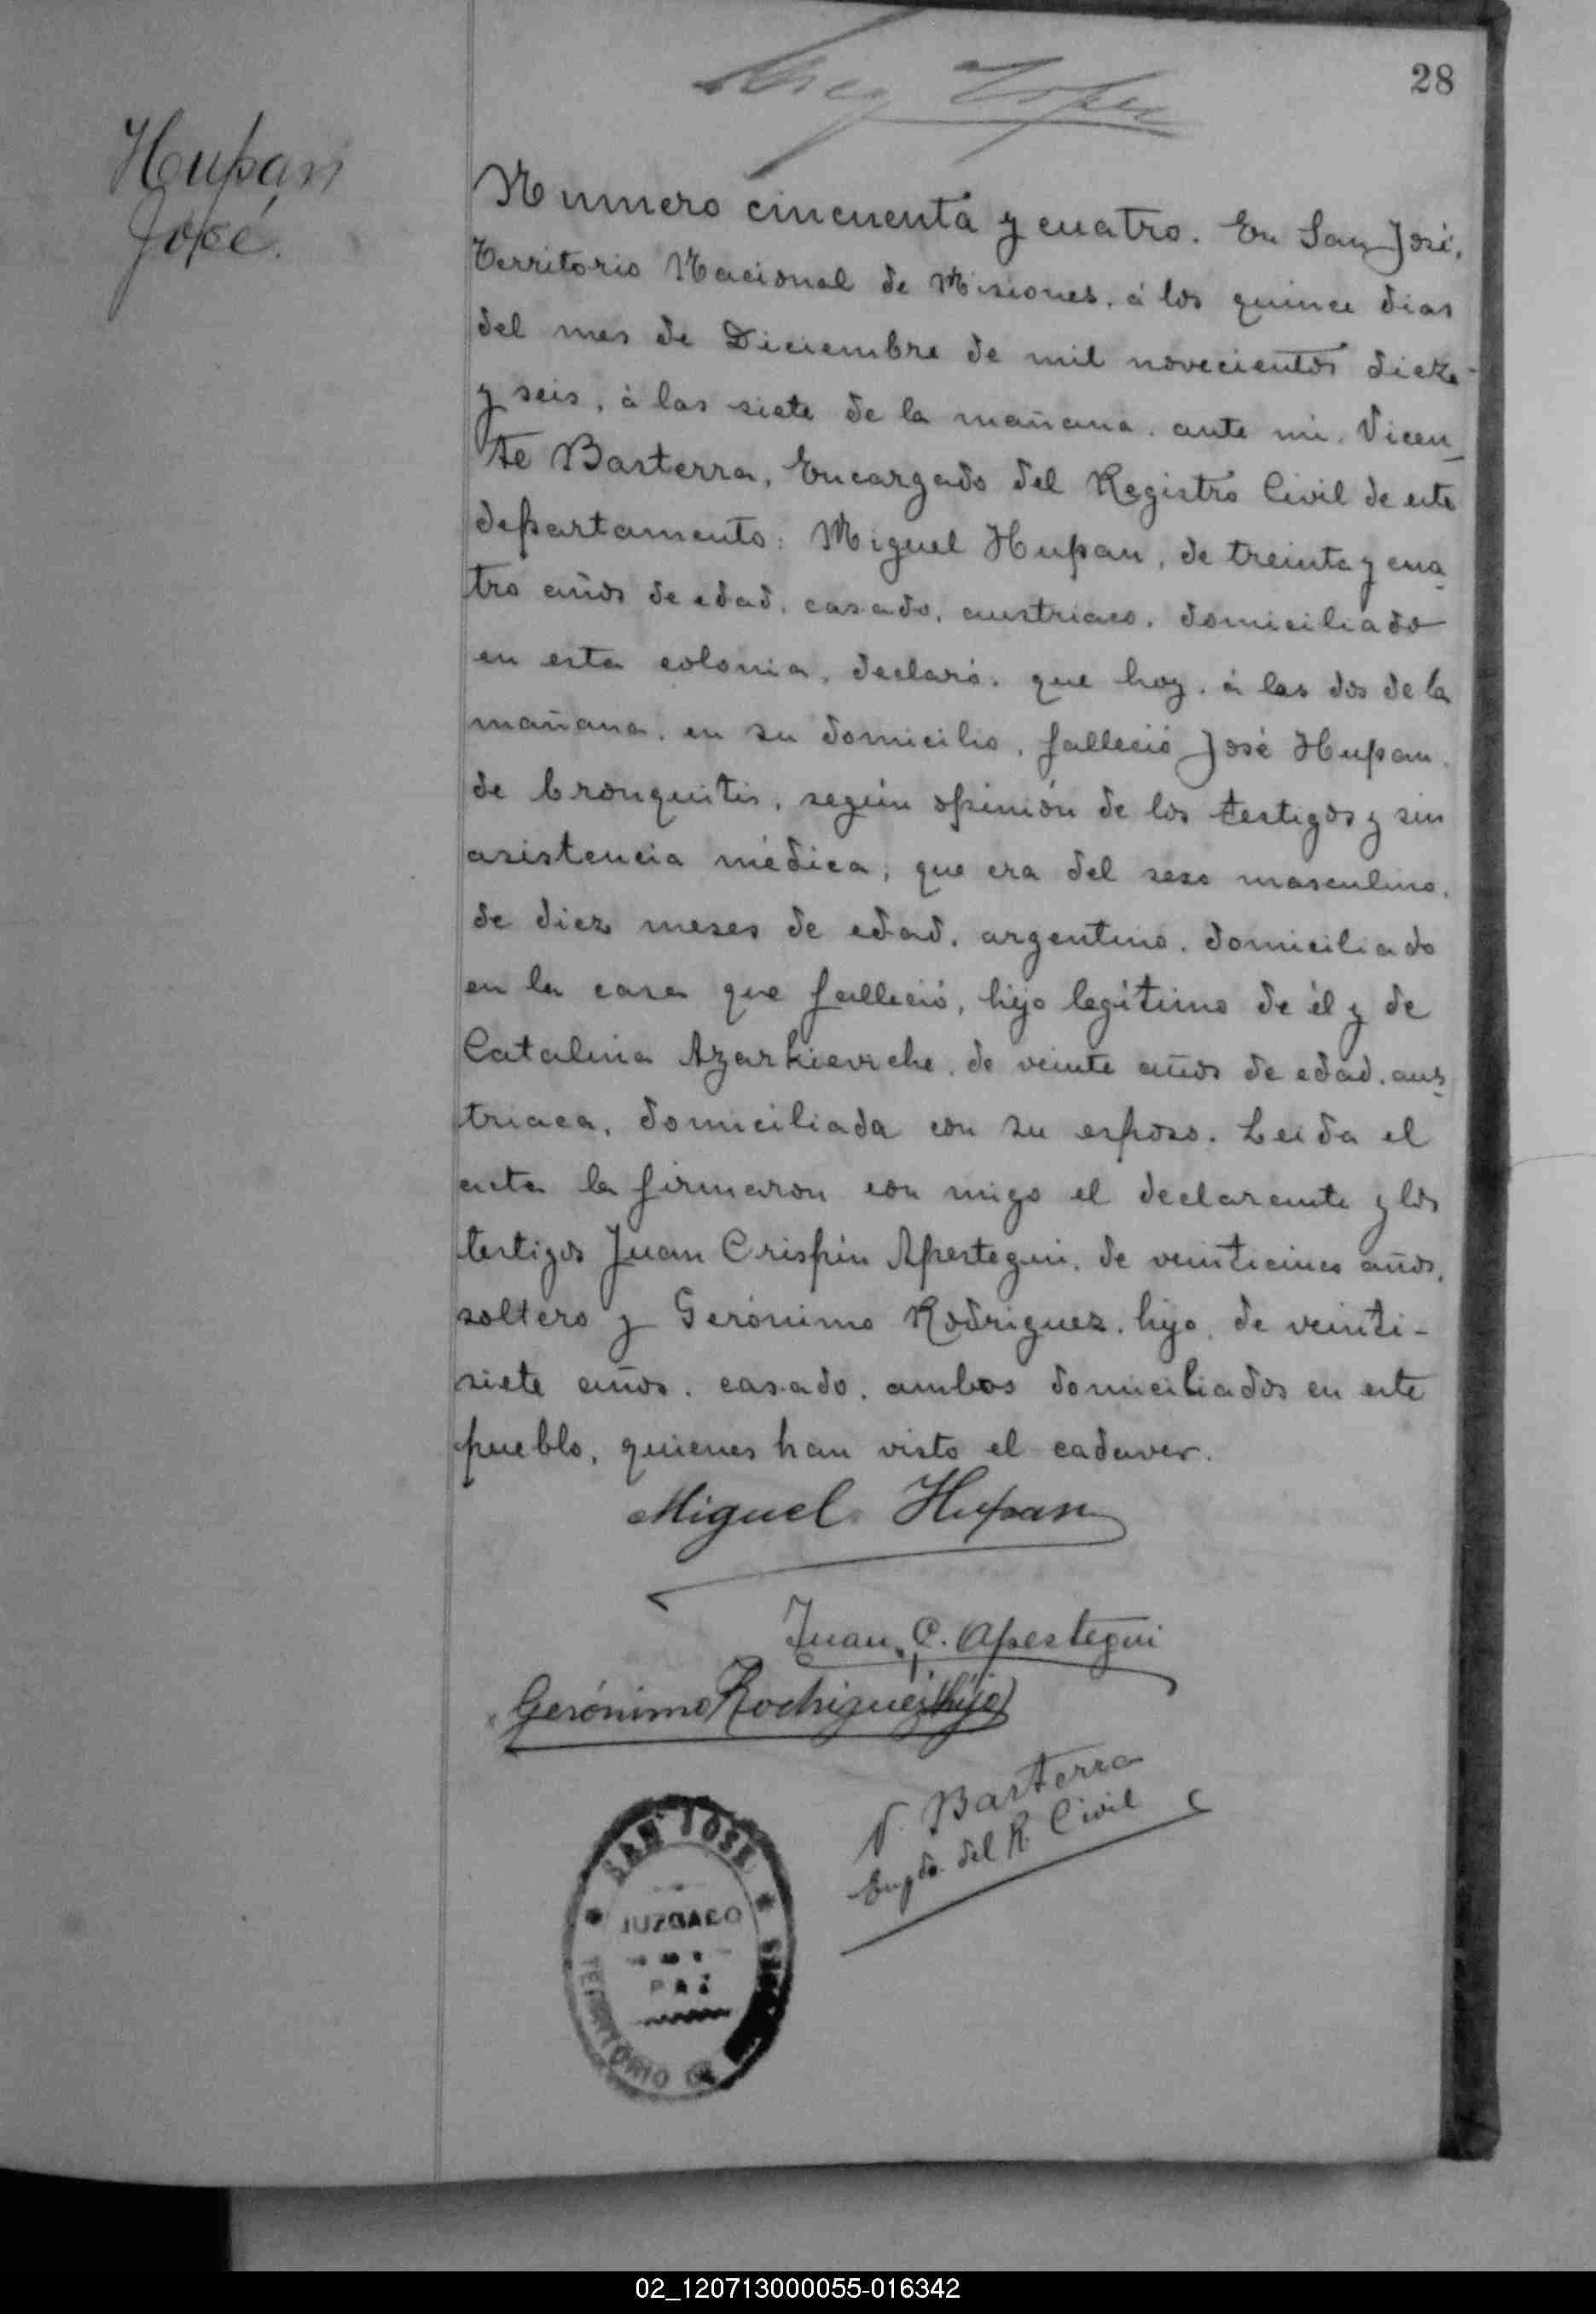 28
Hupan
José.
Numero cincuenta y cuatro. En San José,
Territorio Nacional de Misiones, á los quince dias
del mes de Diciembre de mil novecientos diez
y seis, á las siete de la mañana, ante mi, Vicen_
te Basterra, Encargado del Registro Civil de este
departamento: Miguel Hupan, de treinta y cua_
tro años de edad, casado, austriaco, domiciliado
en esta colonia, declaró: que hoy, á las dos de la
mañana, en su domicilio, falleció José Hupan
de bronquitis, según opinión de los testigos y sin
asistencia médica, que era del sexo masculino,
de diez meses de edad, argentino, domiciliado
en la casa que falleció, hijo legítimo de él y de
Catalina de veinte años de edad, aus_
triaca, domiciliada con su esposo. Leida el
acta la firmaron con migo el declarante y los
testigos Juan Crispín Apestegui, de veinticinco años,
soltero y Gerónimo Rodriguez, hijo, de veinti-
siete años, casado, ambos domiciliados en este
pueblo, quienes han visto el cadaver.
Miguel Hupan
Juan C. Apestegui
Gerónimo Rodriguez (hijo)
V. Basterra
Engdo. del R. Civil
SAN JOSE
JUZGADO
PAZ
TERRITORIO DE
02_120713000055-016342